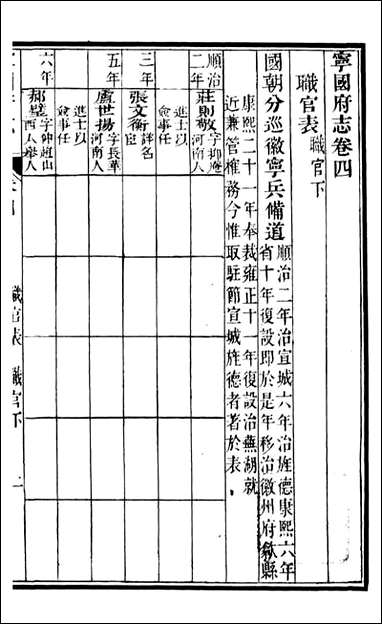 寧國府志卷四
職官表 職官下
國朝分巡徽寧兵備道
順治二年治宣城六年治旌德康熙六年
省十年復設即於是年移治徽州府歙縣
康熙二十一年奉裁雍正十一年復設治蕪湖就
近兼管榷務今惟取駐節宣城旌德者著於表
順治二年
莊則敬 字抑菴 河南人
進士以僉事任
三年
張文衡 詳名宦
五年
盧世揚 字長華 河南人
進士以僉事任
六年
郝璧 字仲趙山西人舉人
職官表 職官下